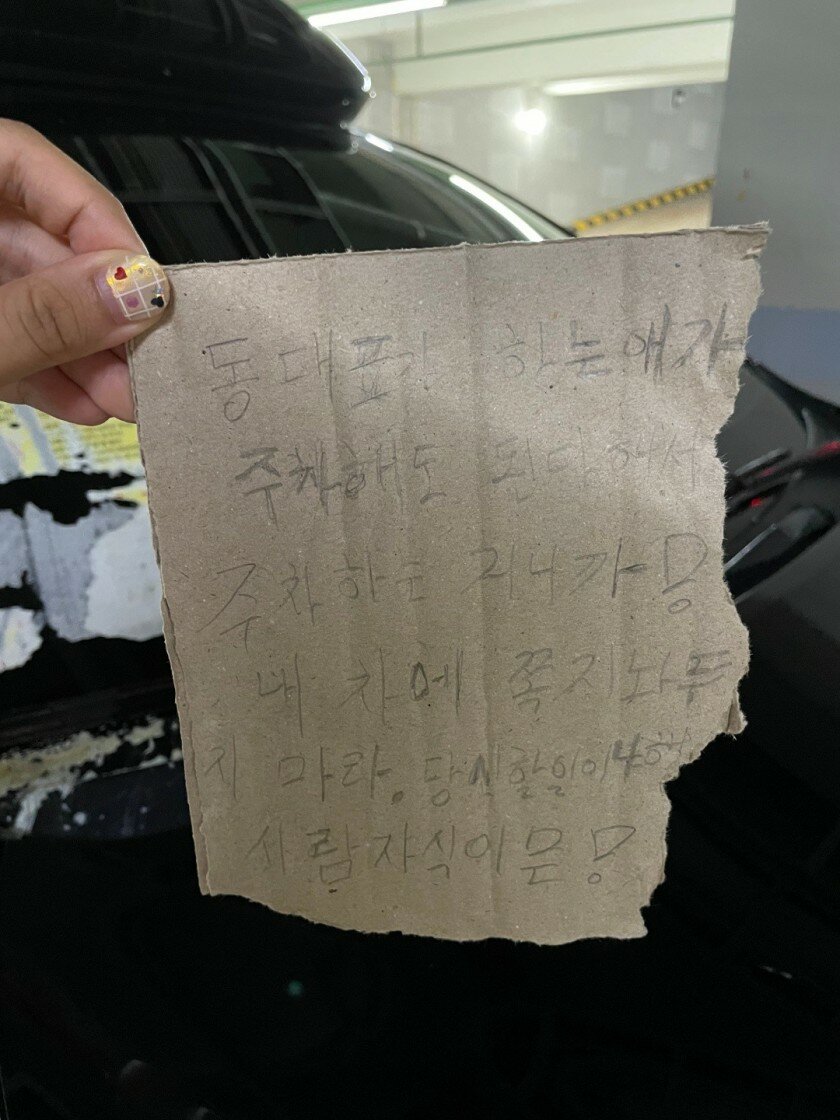 동대표가 하는애가
주차해도 된다해서
주차하는 거니가 몽
내 차에 쪽지놔두
지 마라. 당신할일이나해
사람자식이믄 몽